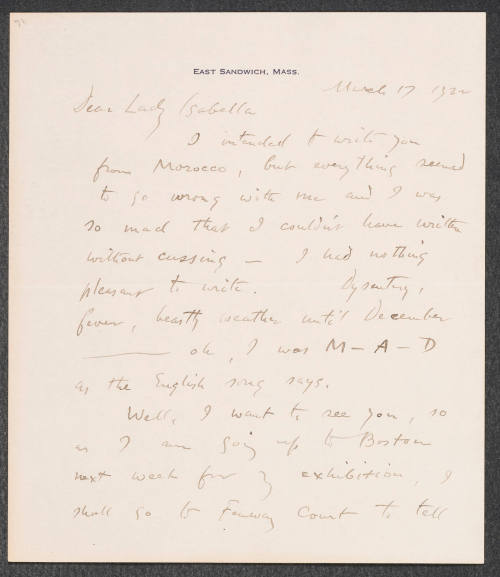 EAST SANDWICH, MASS.
March 17 1922
Dear Lady Isabella
I intended to write you
from Morocco, but everything seemed
to go wrong with me and I was
so mad that I couldn't have written
without cussing — I had nothing
pleasant to write. Dysentery,
fever, beastly weather until December
——— oh, I was M—A—D
as the English song says.
Well, I want to see you, so
as I am going up to Boston
next week for exhibition, I
shall go to Fenway Court to tell